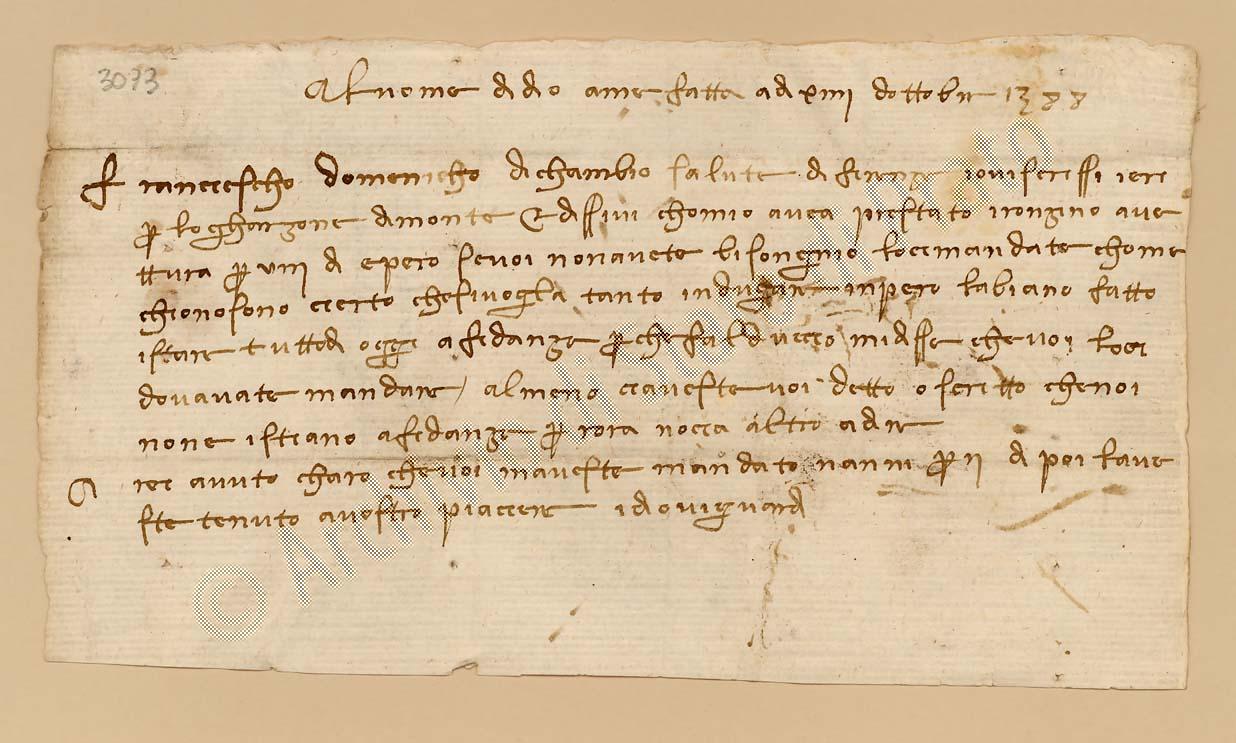 3073
Al nome di dio ame fatta adi xiiii dottobre 1388
Francescho domenicho di chambio salute di firenze io vi scrissi ieri
per lo gharzone di monte e dissivi chomio avea prestato i ronzino a ve
ttura per viii di e pero se voi non avete bisongnio locci mandate chome
chio no sono certo che si vogla tanto indugiare inpero labiano fatto
istare tutto di oggi a fidanza per che falduccio mi disse che voi loci
dovavate mandare / almeno ci aveste voi detto o scritto che noi
none istiano a fidanza per rora nocca altro a dire
rei avuto charo che voi maveste mandato nanni per ii di poi lave
ste tenuto a vostro piaccere idio vi guardi
© Archivio di Stato di Prato